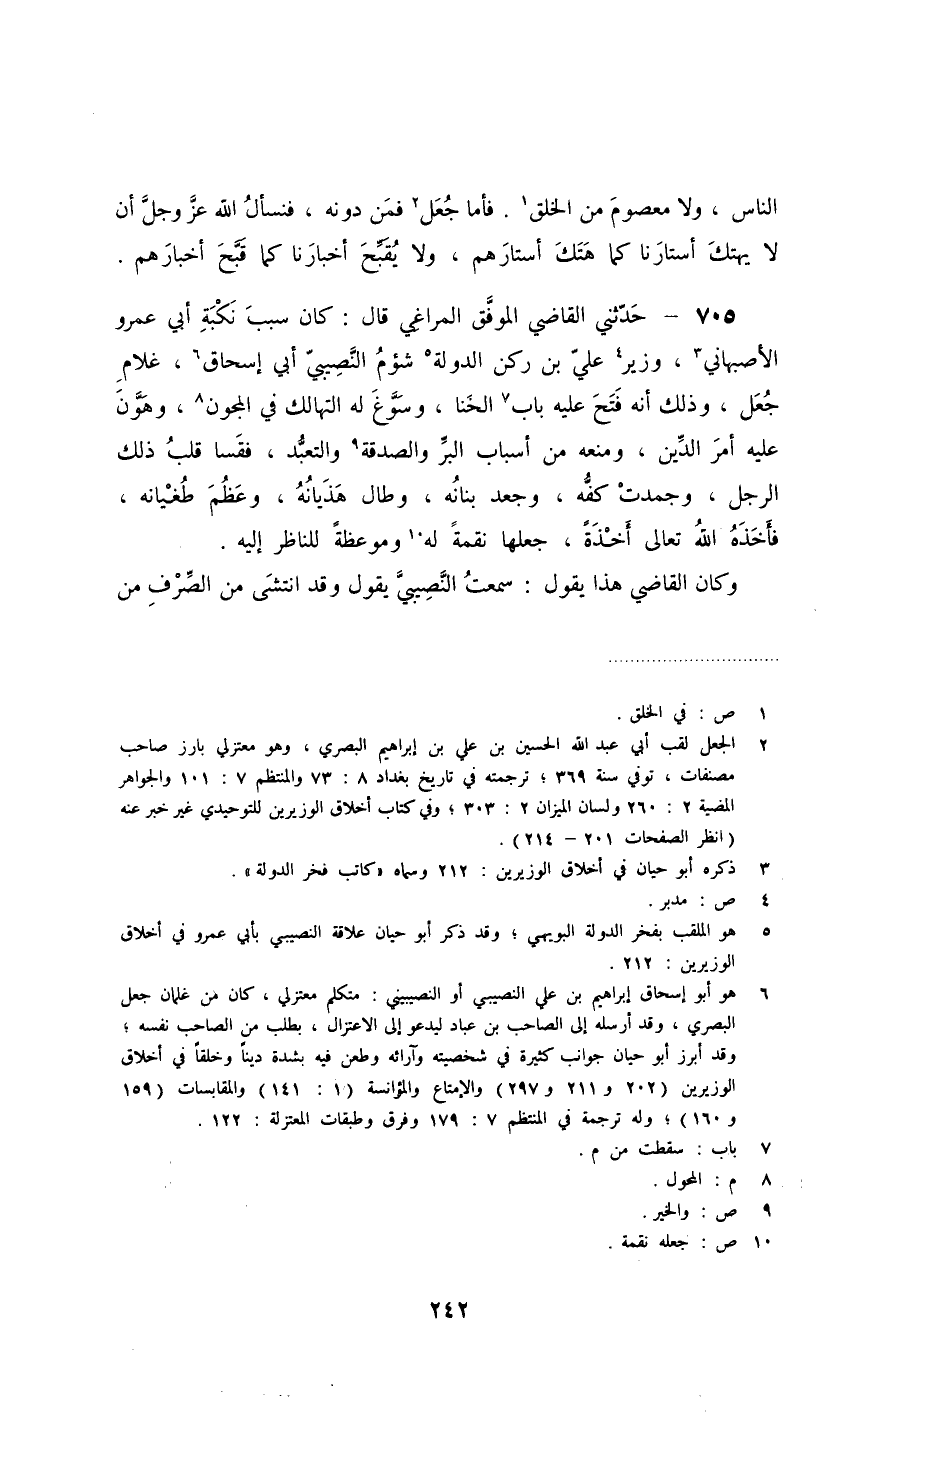 الناس ، ولا معصومَ من الخلق١ . فأما جُعَل٢ فمَن دونه ، فنسألُ الله عزَّ وجلَّ أن
لا يهتكَ أستارَنا كما هَتَكَ أستارَهم ، ولا يُقَبِّحَ أخبارَنا كما قَبَّحَ أخبارَهم .
٧٠٥ – حَدّثني القاضي الموفَّق المراغي قال : كان سببَ نَكْبَةِ أبي عمرو
الأصبهاني٣ ، وزير٤ عليّ بن ركن الدولة٥ شؤمُ النَّصِيبيّ أبي إسحاق٦ ، غلامِ
جُعَل ، وذلك أنه فَتَحَ عليه باب٧ الخَنا ، وسَوَّغَ له التهالك في المجون٨ ، وهَوَّنَ
عليه أمرَ الدِّين ، ومنعه من أسباب البرِّ والصدقة٩ والتعبُّد ، فقَسا قلبُ ذلك
الرجل ، وجمدتْ كفُّه ، وجعد بنانُه ، وطال هَذَيانُهُ ، وعَظُمَ طُغْيانه ،
فأَخَذَهُ اللهُ تعالى أَخْذَةً ، جعلها نقمةً له١٠ وموعظةً للناظر إليه .
وكان القاضي هذا يقول : سمعتُ النَّصِيبيَّ يقول وقد انتشَى من الصِّرْفِ من
١ ص : في الخلق .
٢ الجعل لقب أبي عبد الله الحسين بن علي بن إبراهيم البصري ، وهو معتزلي بارز صاحب
مصنفات ، توفي سنة ٣٦٩ ؛ ترجمته في تاريخ بغداد ٨ : ٧٣ والمنتظم ٧ : ١٠١ والجواهر
المضية ٢ : ٢٦٠ ولسان الميزان ٢ : ٣٠٣ ؛ وفي كتاب أخلاق الوزيرين للتوحيدي غير خبر عنه
(انظر الصفحات ٢٠١ – ٢١٤) .
٣ ذكره أبو حيان في أخلاق الوزيرين : ٢١٢ وسماه «كاتب فخر الدولة» .
٤ ص : مدبر .
٥ هو الملقب بفخر الدولة البويهي ؛ وقد ذكر أبو حيان علاقة النصيبي بأبي عمرو في أخلاق
الوزيرين : ٢١٢ .
٦ هو أبو إسحاق إبراهيم بن علي النصيبي أو النصيبيني : متكلم معتزلي ، كان من غلمان جعل
البصري ، وقد أرسله إلى الصاحب بن عباد ليدعو إلى الاعتزال ، بطلب من الصاحب نفسه ؛
وقد أبرز أبو حيان جوانب كثيرة في شخصيته وآرائه وطعن فيه بشدة ديناً وخلقاً في أخلاق
الوزيرين (٢٠٢ و ٢١١ و ٢٩٧) والإمتاع والمؤانسة (١ : ١٤١) والمقابسات (١٥٩
و ١٦٠) ؛ وله ترجمة في المنتظم ٧ : ١٧٩ وفرق وطبقات المعتزلة : ١٢٢ .
٧ باب : سقطت من م .
٨ م : المحول .
٩ ص : والخير .
١٠ ص : جعله نقمة .
٢٤٢